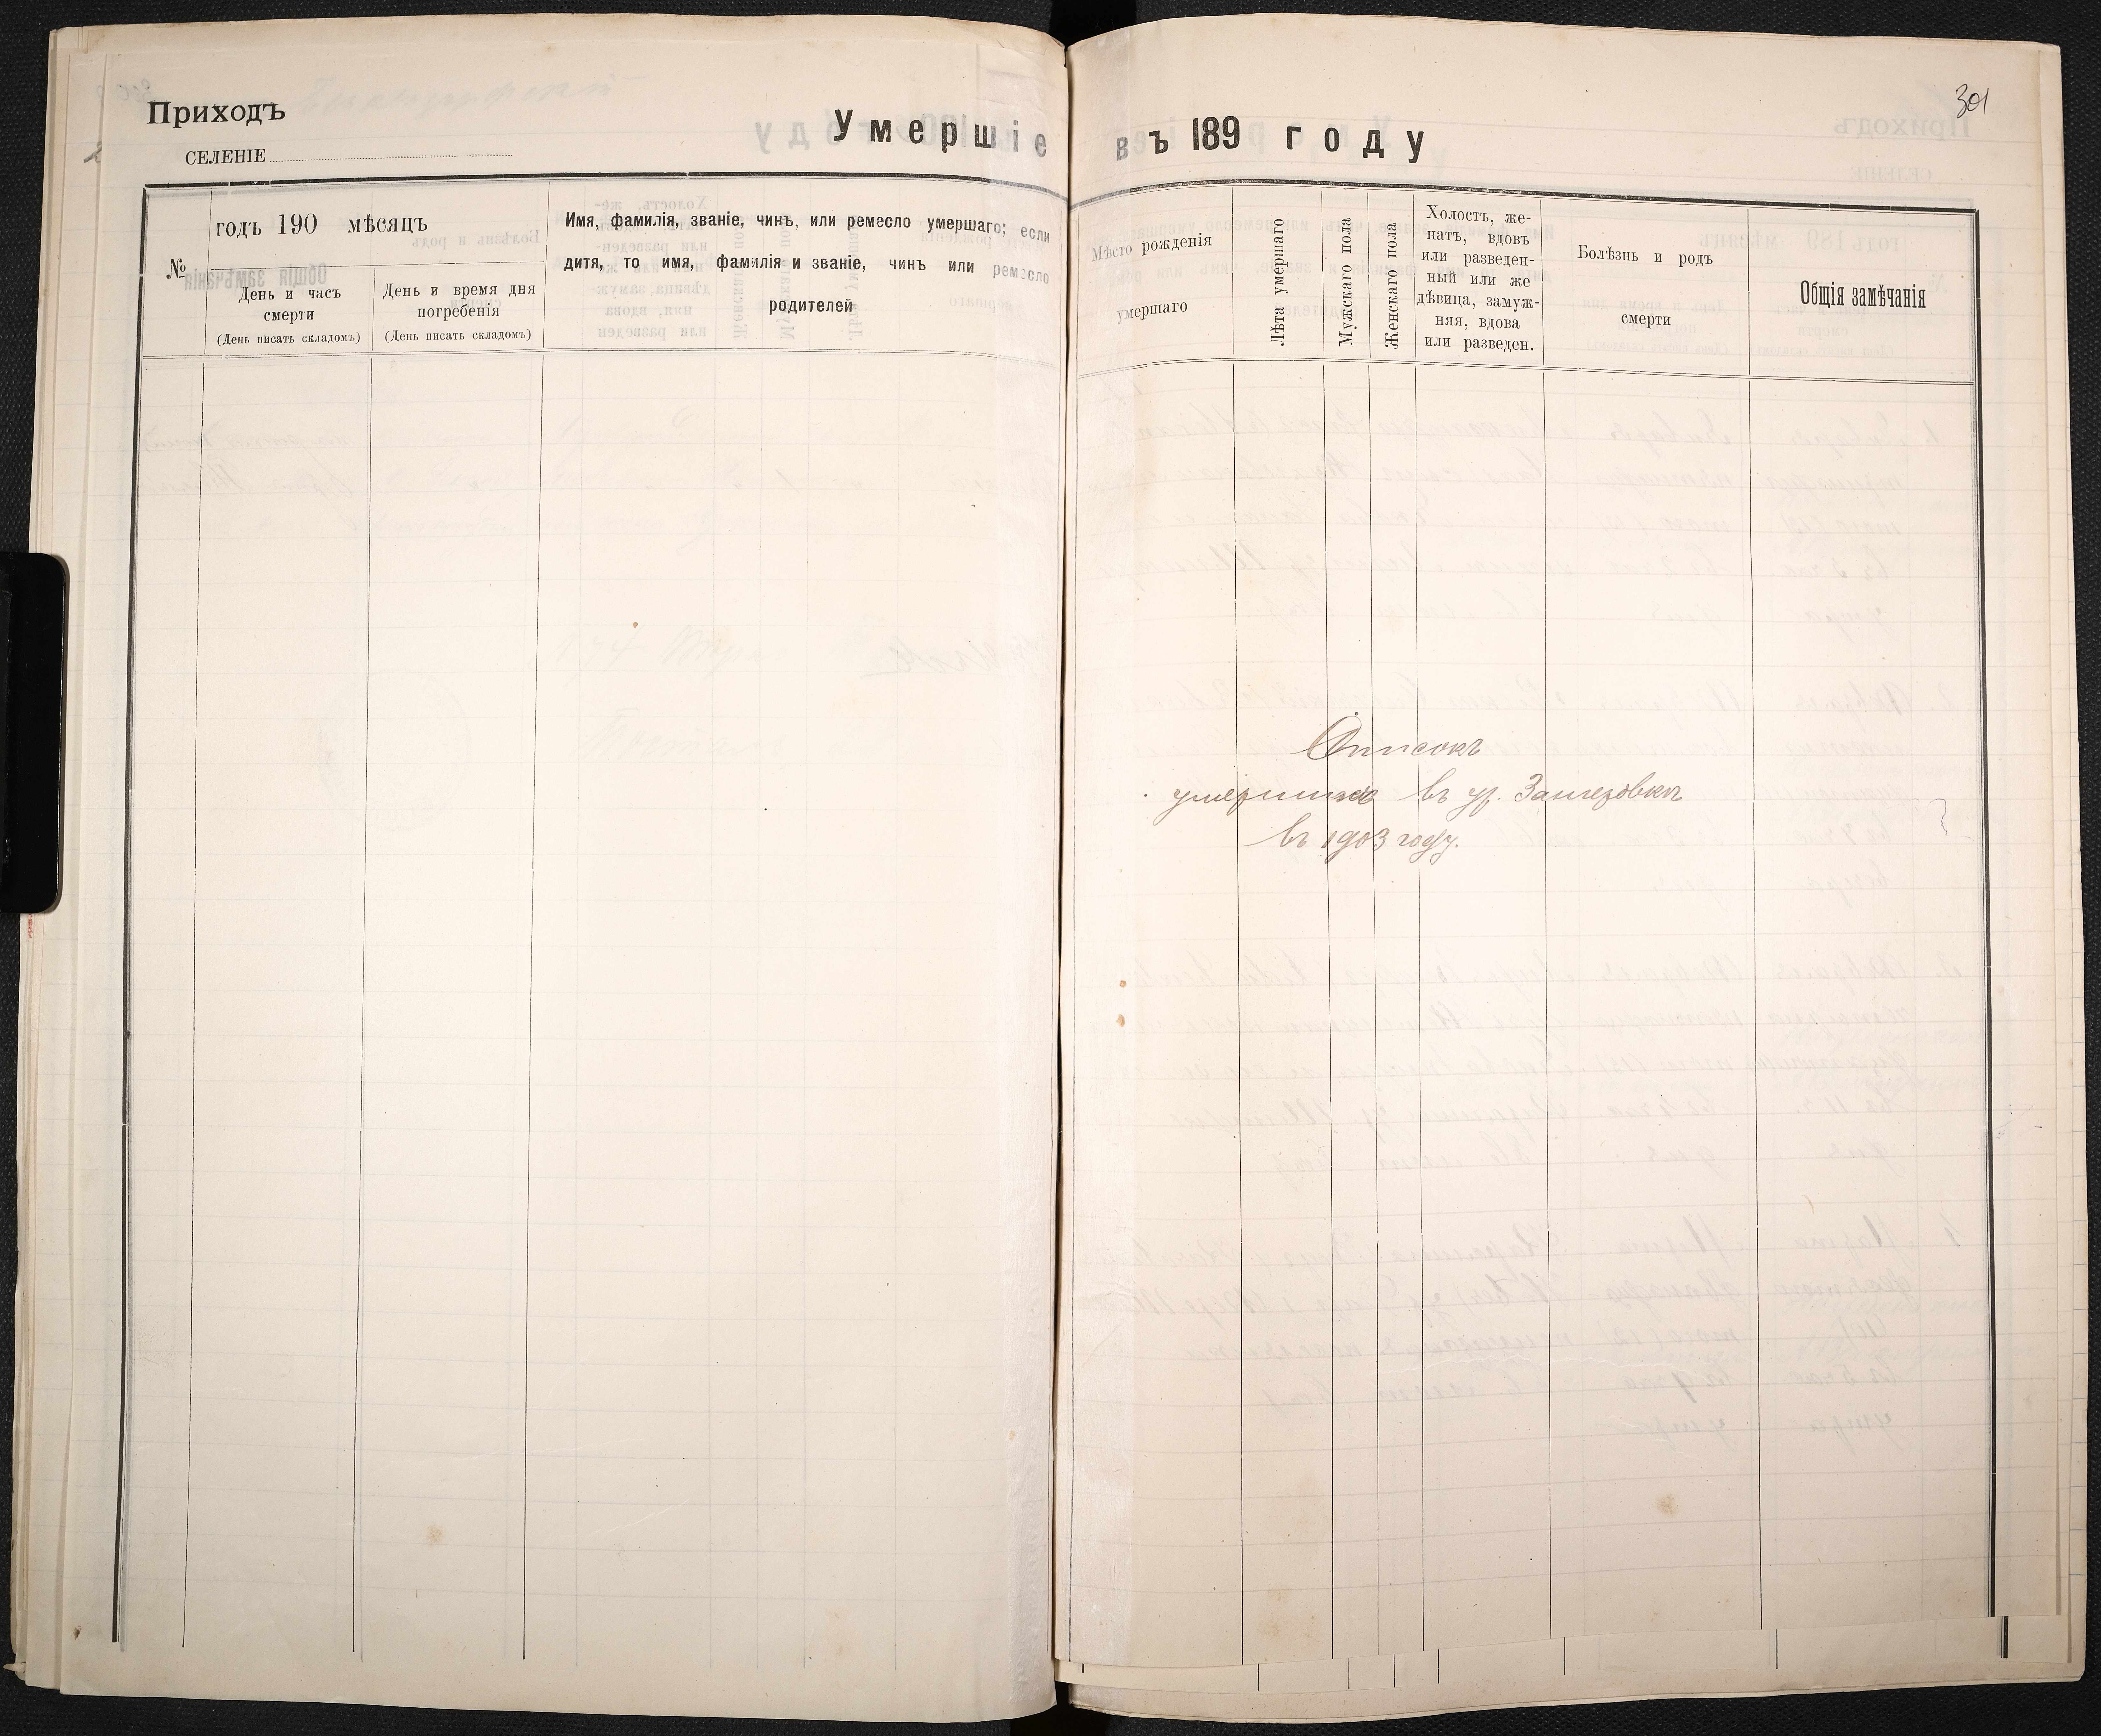 Приходъ
СЕЛЕНІЕ
Умершіе въ 189 году
301
№
годъ 190 мѣсяцъ
День и часъ
смерти
(День писать складомъ)
День и время дня
погребенія
(День писать складомъ)
Имя, фамилія, званіе, чинъ, или ремесло умершаго; если
дитя, то имя, фамилія и званіе, чинъ или ремесло
родителей
Мѣсто рожденія
умершаго
Лѣта умершаго
Мужскаго пола
Женскаго пола
Холостъ, же-
натъ, вдовъ
или разведен-
ный или же
дѣвица, замуж-
няя, вдова
или разведен.
Болѣзнь и родъ
смерти
Общія замѣчанія
Списокъ
умершихъ въ ур.
въ 1903 году.